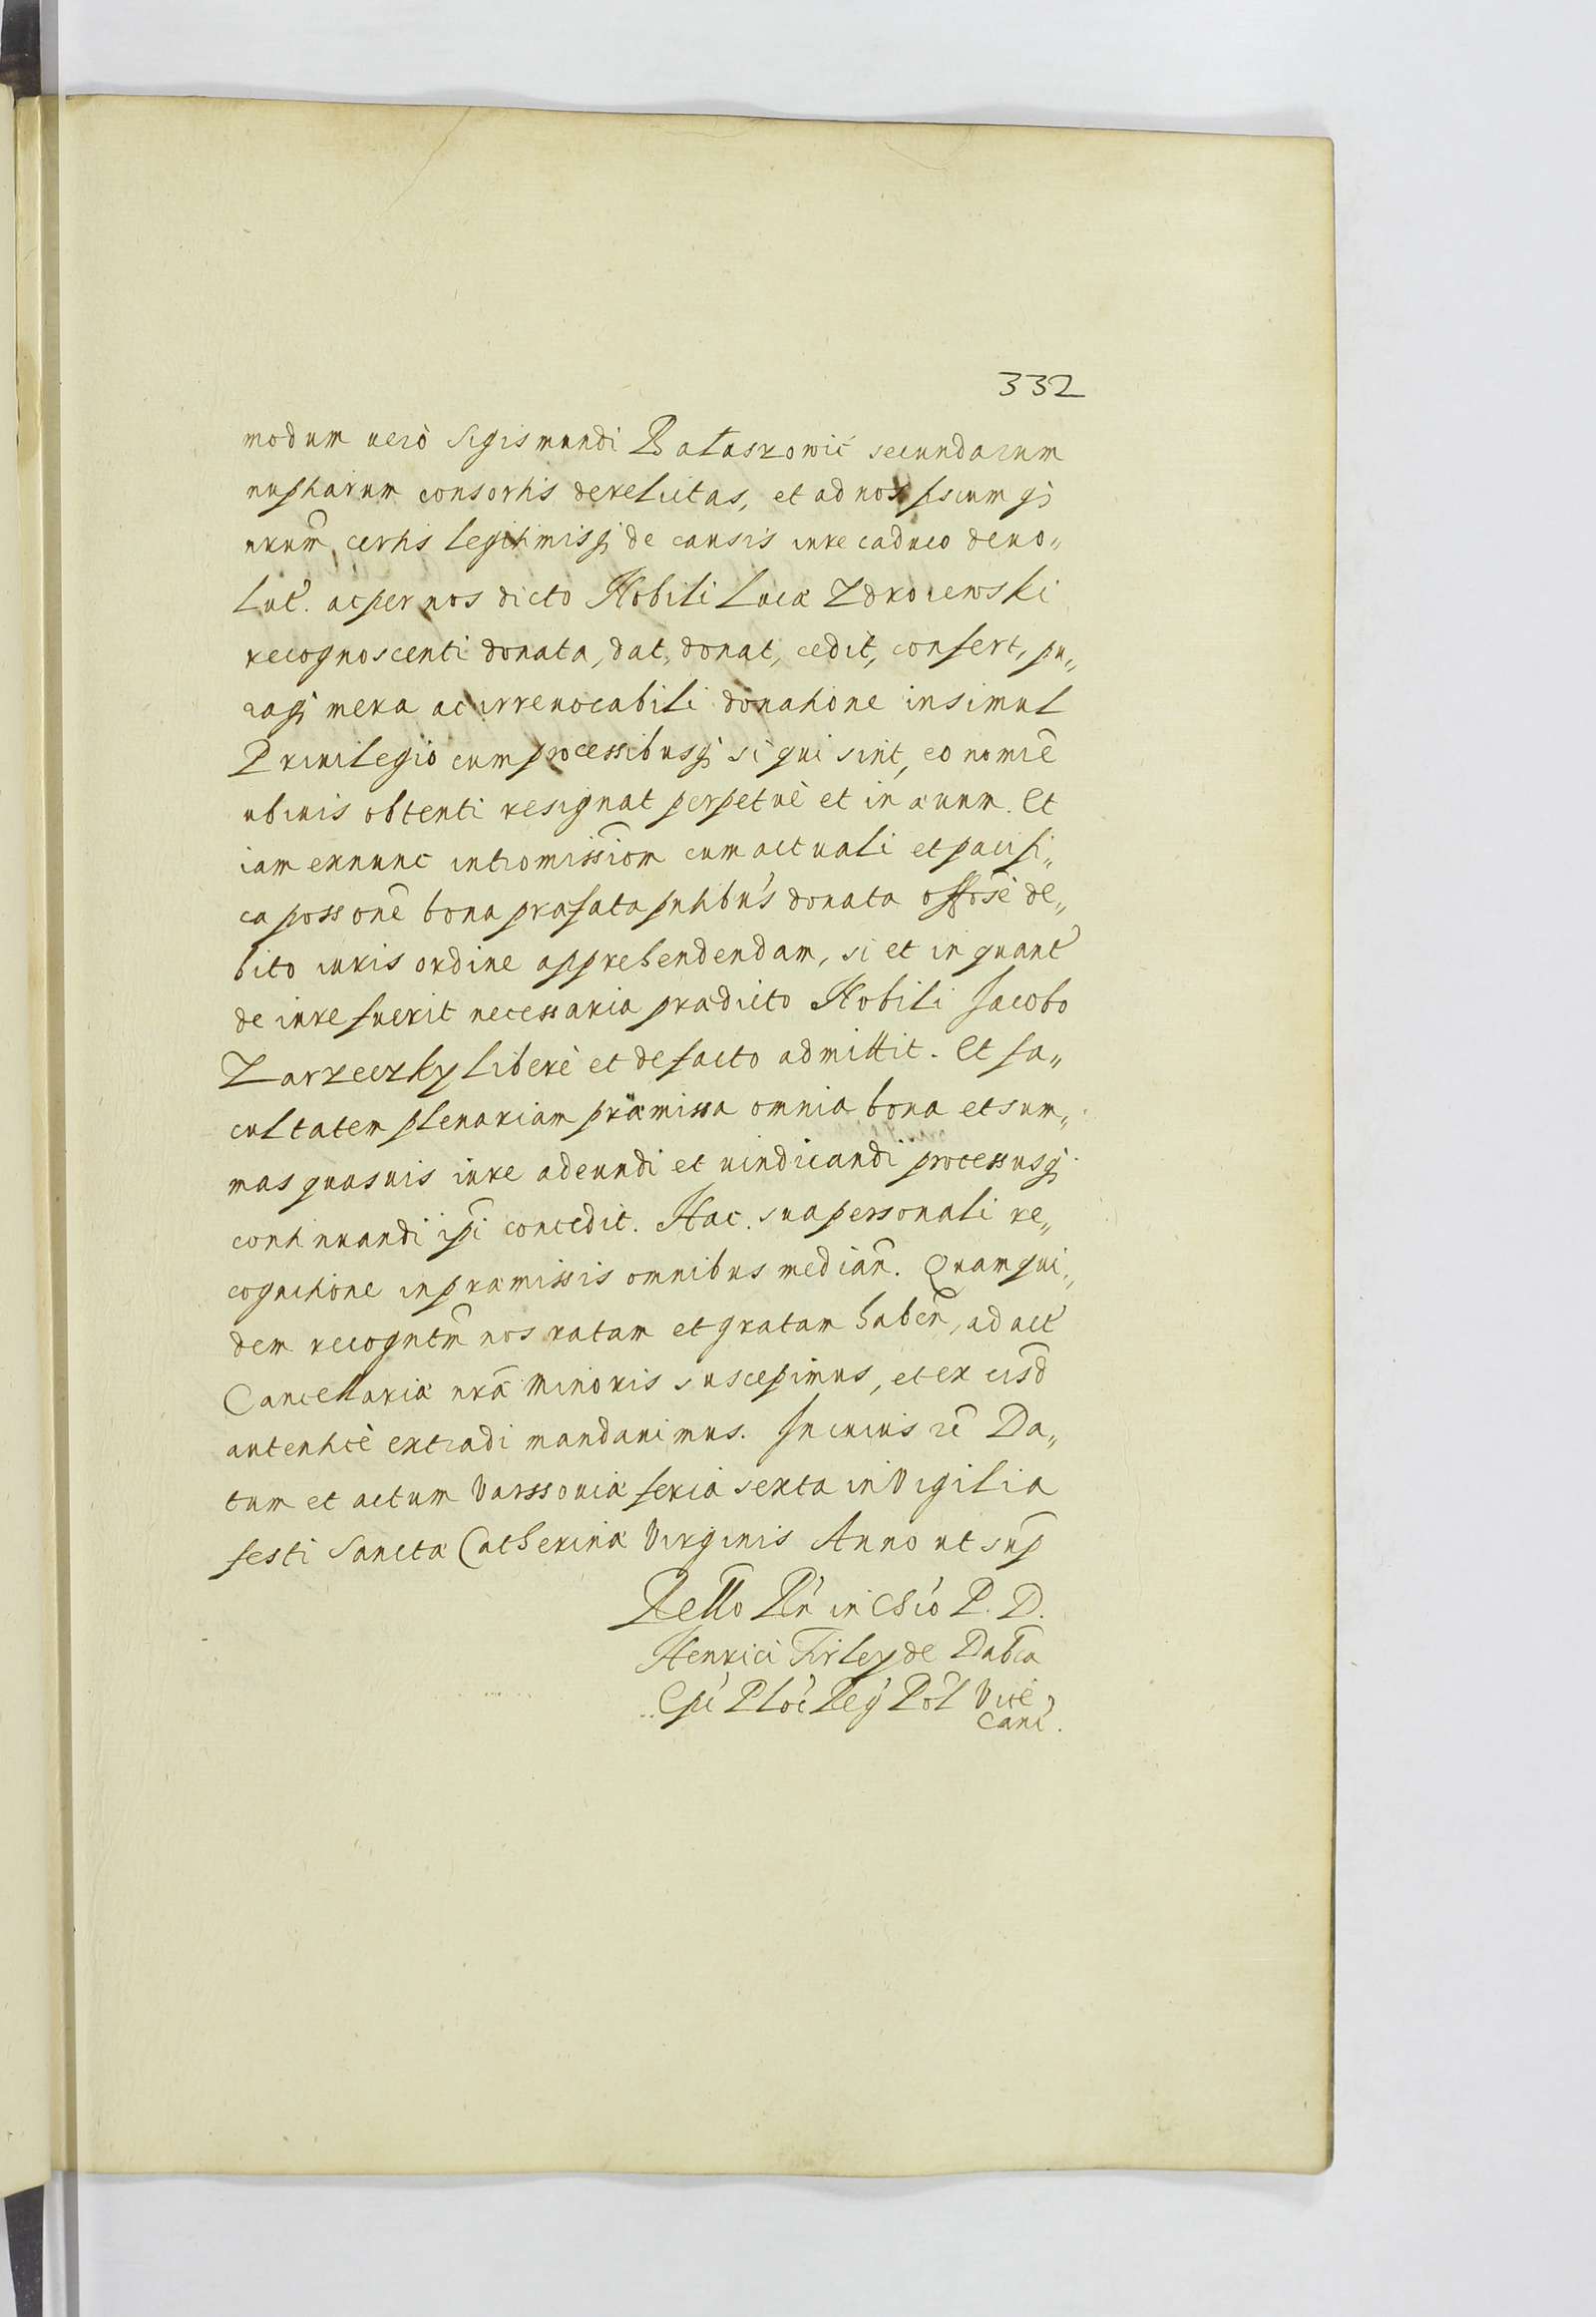 332
modum uerò Sigismundi Bałaszowic secundarum
nuptiarum consortis derelictas, et ad nos fiscumq;
nrum̃ certis legitimisq; de causis iure caduco deuo„
lut. ac per nos dicto Nobili Lucæ Zdrorewski
recognoscenti donata, dat, donat, cedit, confert, pu„
raq; mera ac irreuocabili donatione insimul
Priuilegio cum processibusq; si qui sint, eo nomie
ubiuis obtenti resignat perpetuè et in æuum. Et
iam exnunc intromissiom̃ cum actuali et pacifi„
ca possone bona præfata pntibus donata offose de„
bito iuris ordine apprehendendam, si et in quant
de iure fuerit necessaria prædicto Nobili Jacobo
Zarzeczky liberè et de facto admittit. Et fa„
cultatem plenariam præmissa omnia bona et sum„
mas quasuis iure adeundi et uindicandi processusq;
continuandi ipi concedit. Hac sua personali re„
cognitione in præmissis omnibus median. Quam qui„
dem recogntm̃ nos ratam et gratam haben, ad act
Cancellariæ nræ Minoris suscepimus, et ex eisd
autenticè extradi mandauimus. In cuius rē Da„
tum et actum Varssouiæ feria sexta in Vigilia
festi Sanctæ Catherinæ Virginis Anno ut sup
Rello Rn in Chō P. D.
Henrici Firley de Dabca
Epi Ploc Reg Pol Vice
Canc.